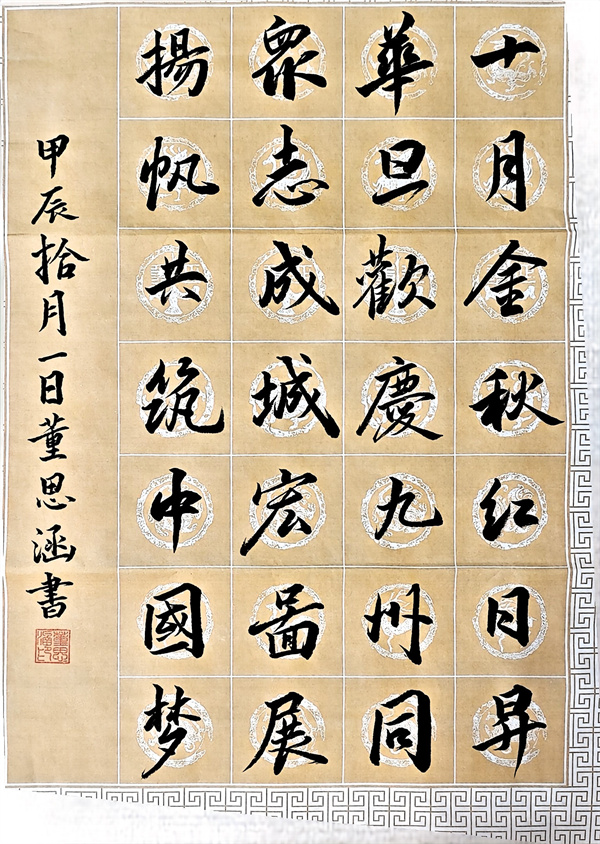 十月金秋红日昇
華旦歡慶九州同
眾志成城宏啚展
揚帆共筑中國梦
甲辰拾月一日董思涵書
董思涵印